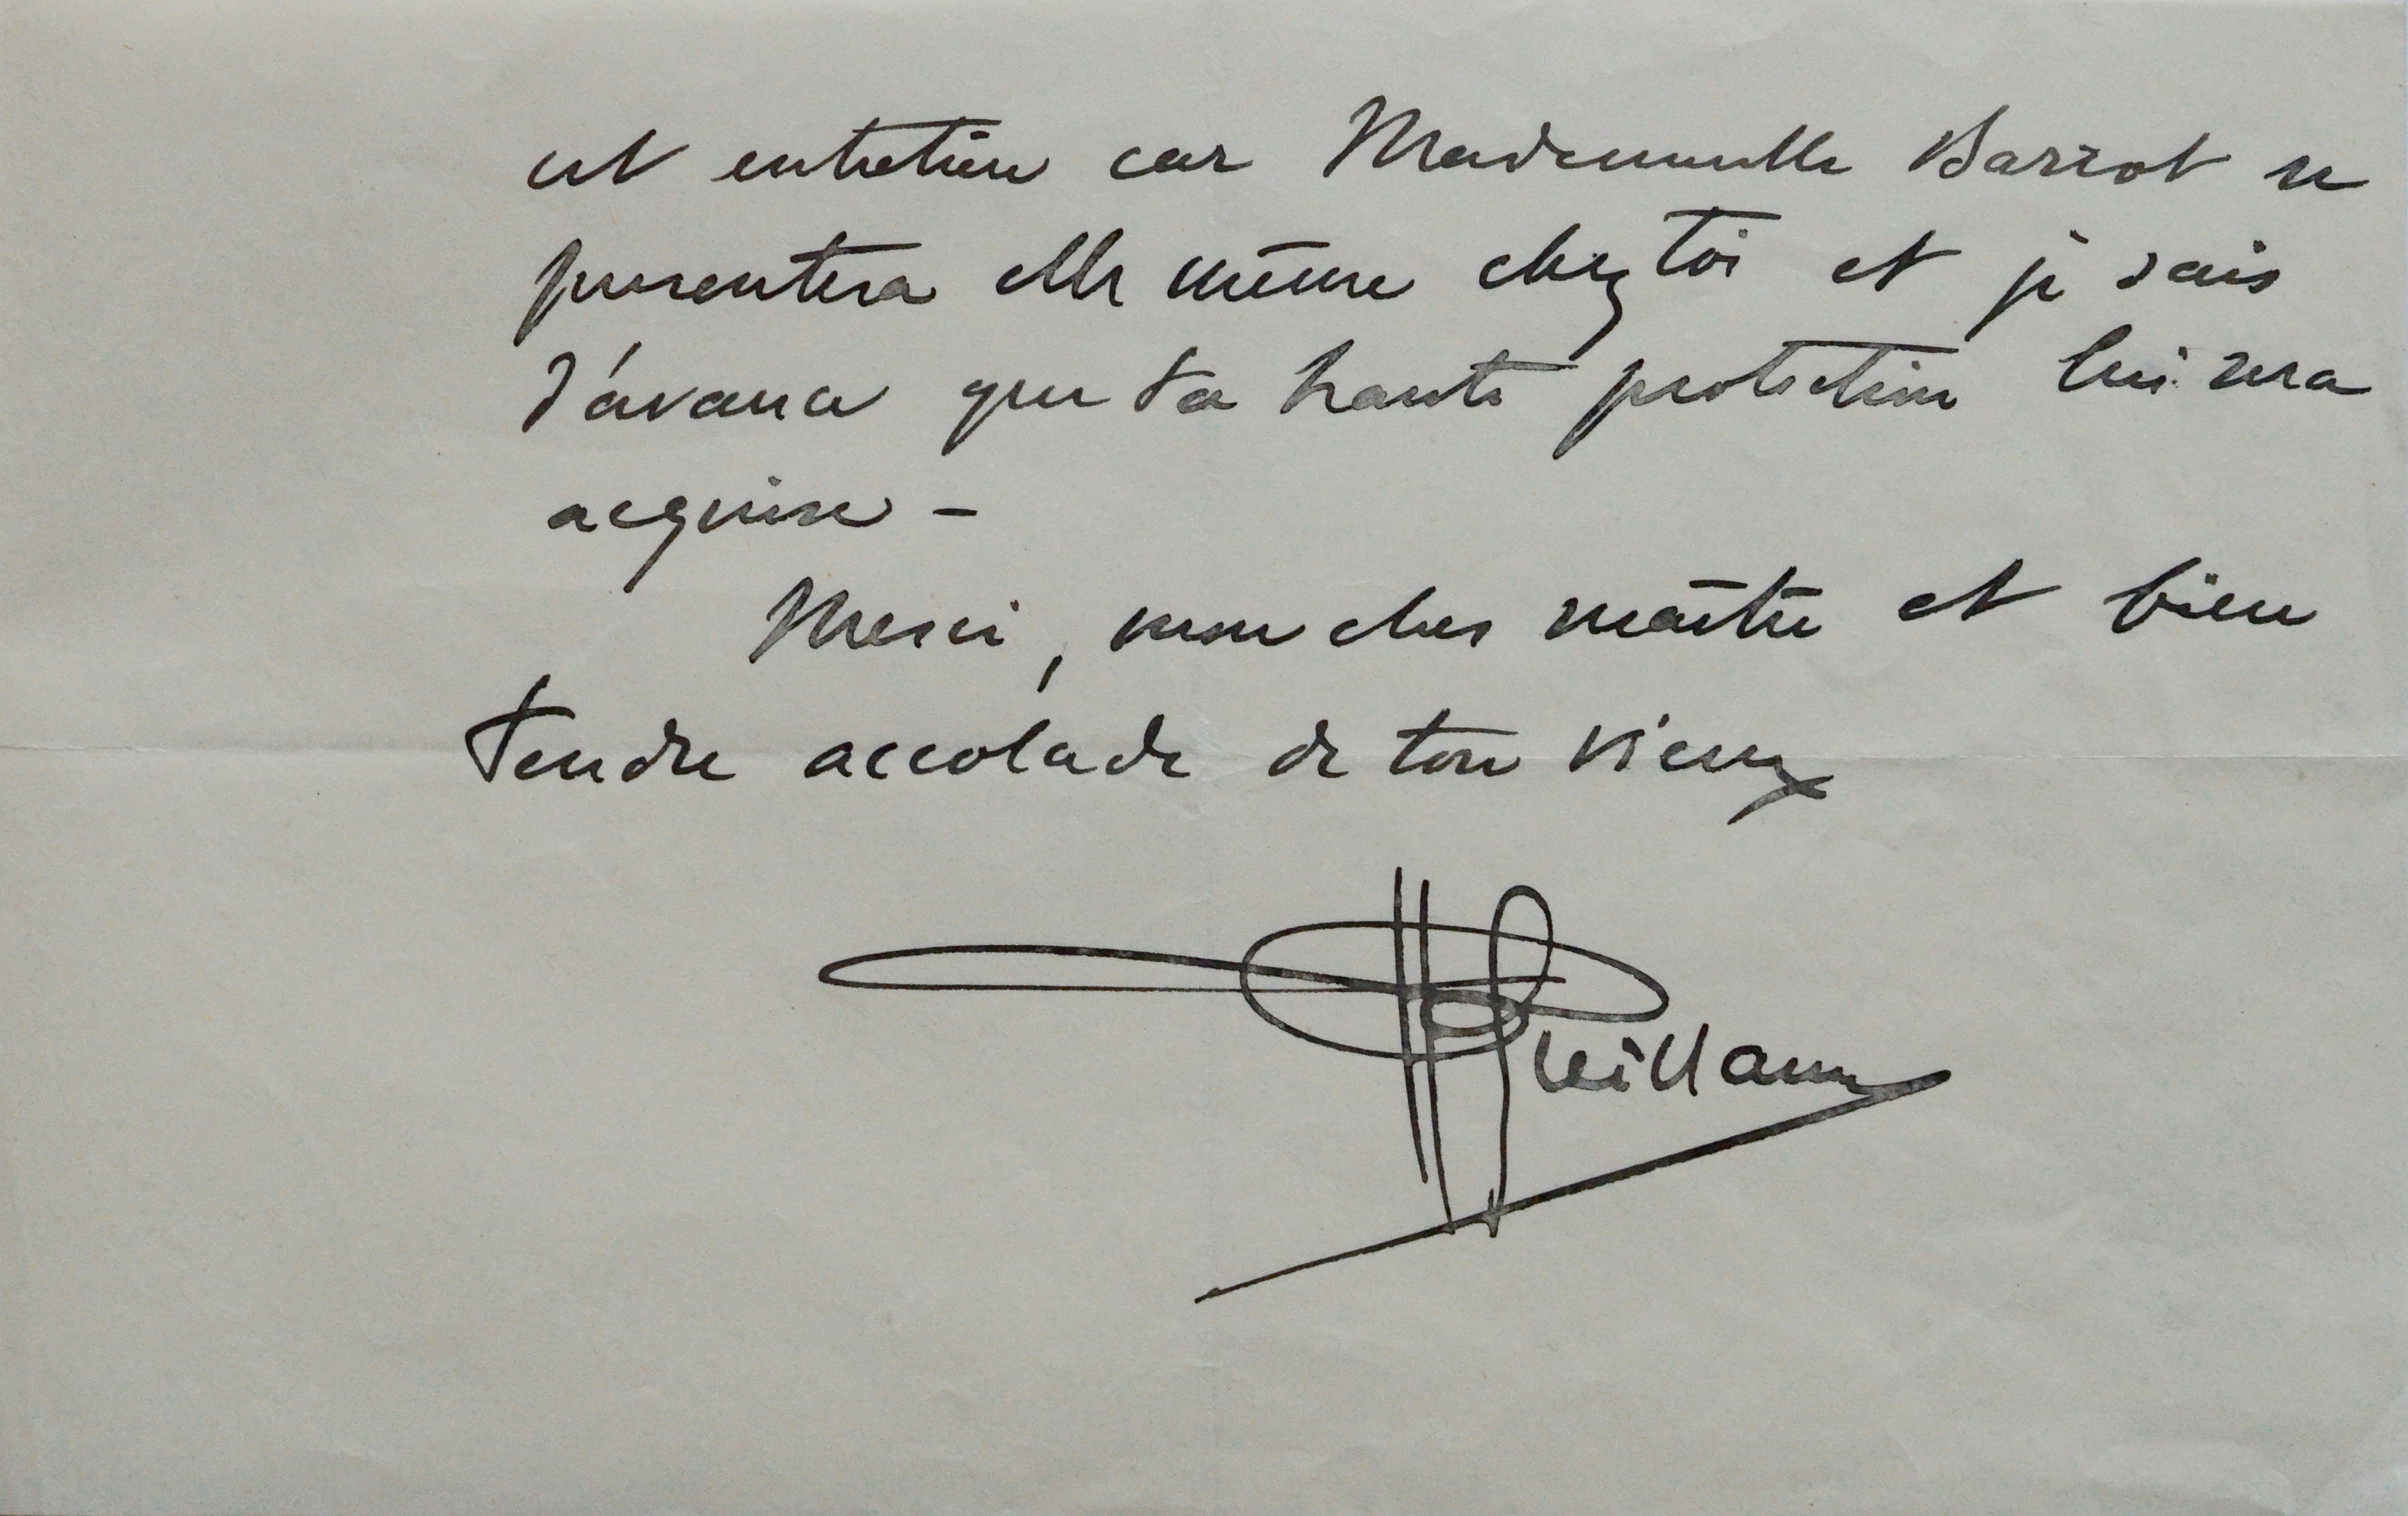 cet entretien car Mademoiselle Barrot se
presentera elle même chez toi et je sais
d'avance que ta haute protection lui sera
acquise -
Merci, mon cher maître et bien
tendre accolade de ton vieux
Willam